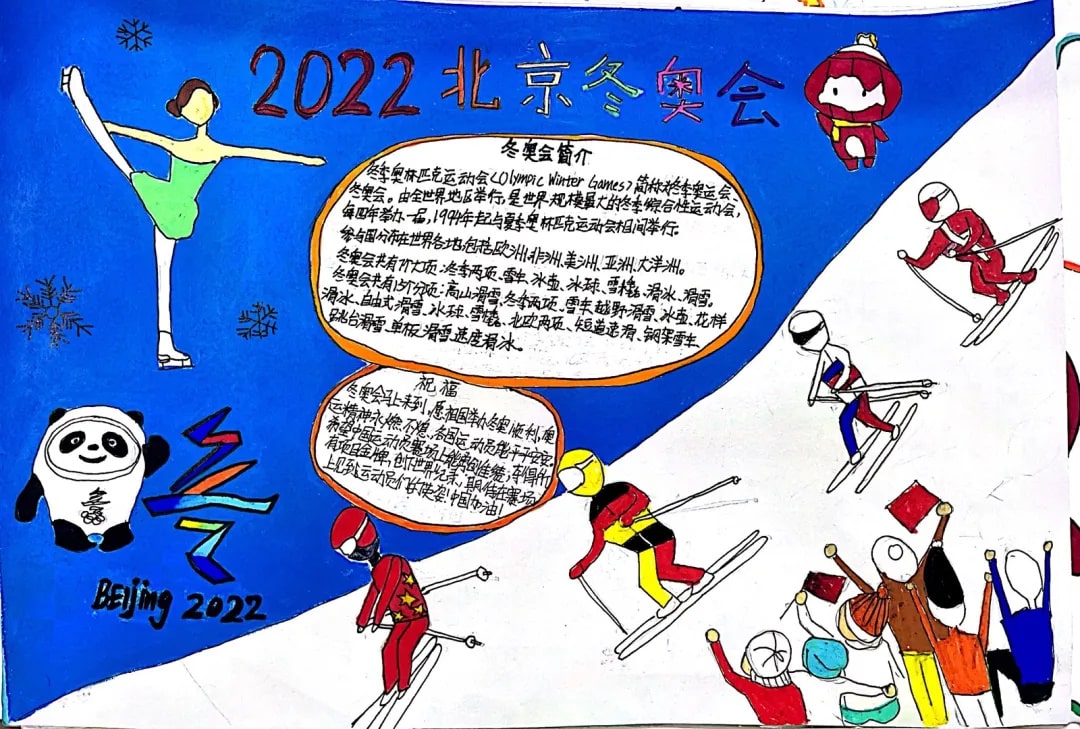 2022 北京冬奥会
冬奥会简介
冬季奥林匹克运动会(Olympic Winter Games)简称冬季奥运会、
冬奥会。由全世界地区举行,是世界规模最大的冬季综合性运动会,
每四年举办一届,1994年起与夏季奥林匹克运动会相间举行。
参与国分布在世界各地,包括欧洲、非洲、美洲、亚洲、大洋洲。
冬奥会共有7个大项:冬季两项、雪车、冰壶、冰球、雪橇、滑冰、滑雪。
冬奥会共有15个分项:高山滑雪、冬季两项、雪车、越野滑雪、冰壶、花样
滑冰、自由式滑雪、冰球、雪橇、北欧两项、短道速滑、钢架雪车、
跳台滑雪、单板滑雪、速度滑冰。
祝福
冬奥会马上来到,愿祖国举办冬奥顺利,奥
运精神永燃不熄,各国运动员能平平安安,
希望中国运动员赛场上能再创佳绩,
有项目金牌,创下世界纪录,期待在赛场
上见到运动员们的英姿!中国加油!
BEIjing 2022